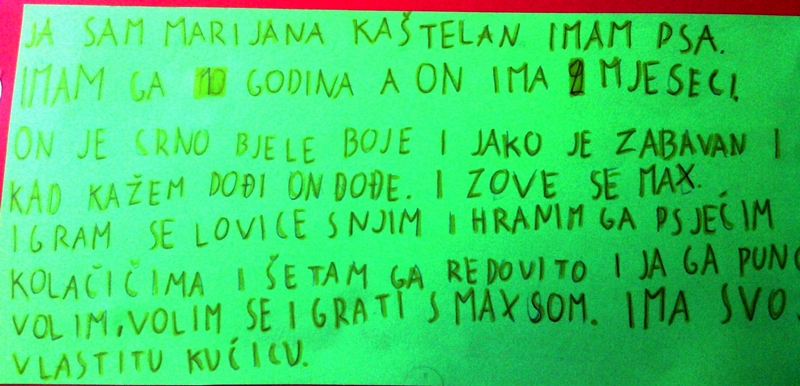 JA SAM MARIJANA KAŠTELAN. IMAM PSA.
IMAM GA 10 GODINA A ON IMA MJESECI.
ON JE CRNO BJELE BOJE I JAKO JE ZABAVAN I
KAD KAŽEM DOĐI ON DOĐE. I ZOVE SE MAX.
IGRAM SE LOVICE SNJIM I HRANIM GA PSJEĆIM
KOLAČIČIMA I ŠETAM GA REDOVITO I JA GA PUNO
VOLIM, VOLIM SE IGRATI S MAXSOM. IMA SVO
VLASTITU KUĆICU.